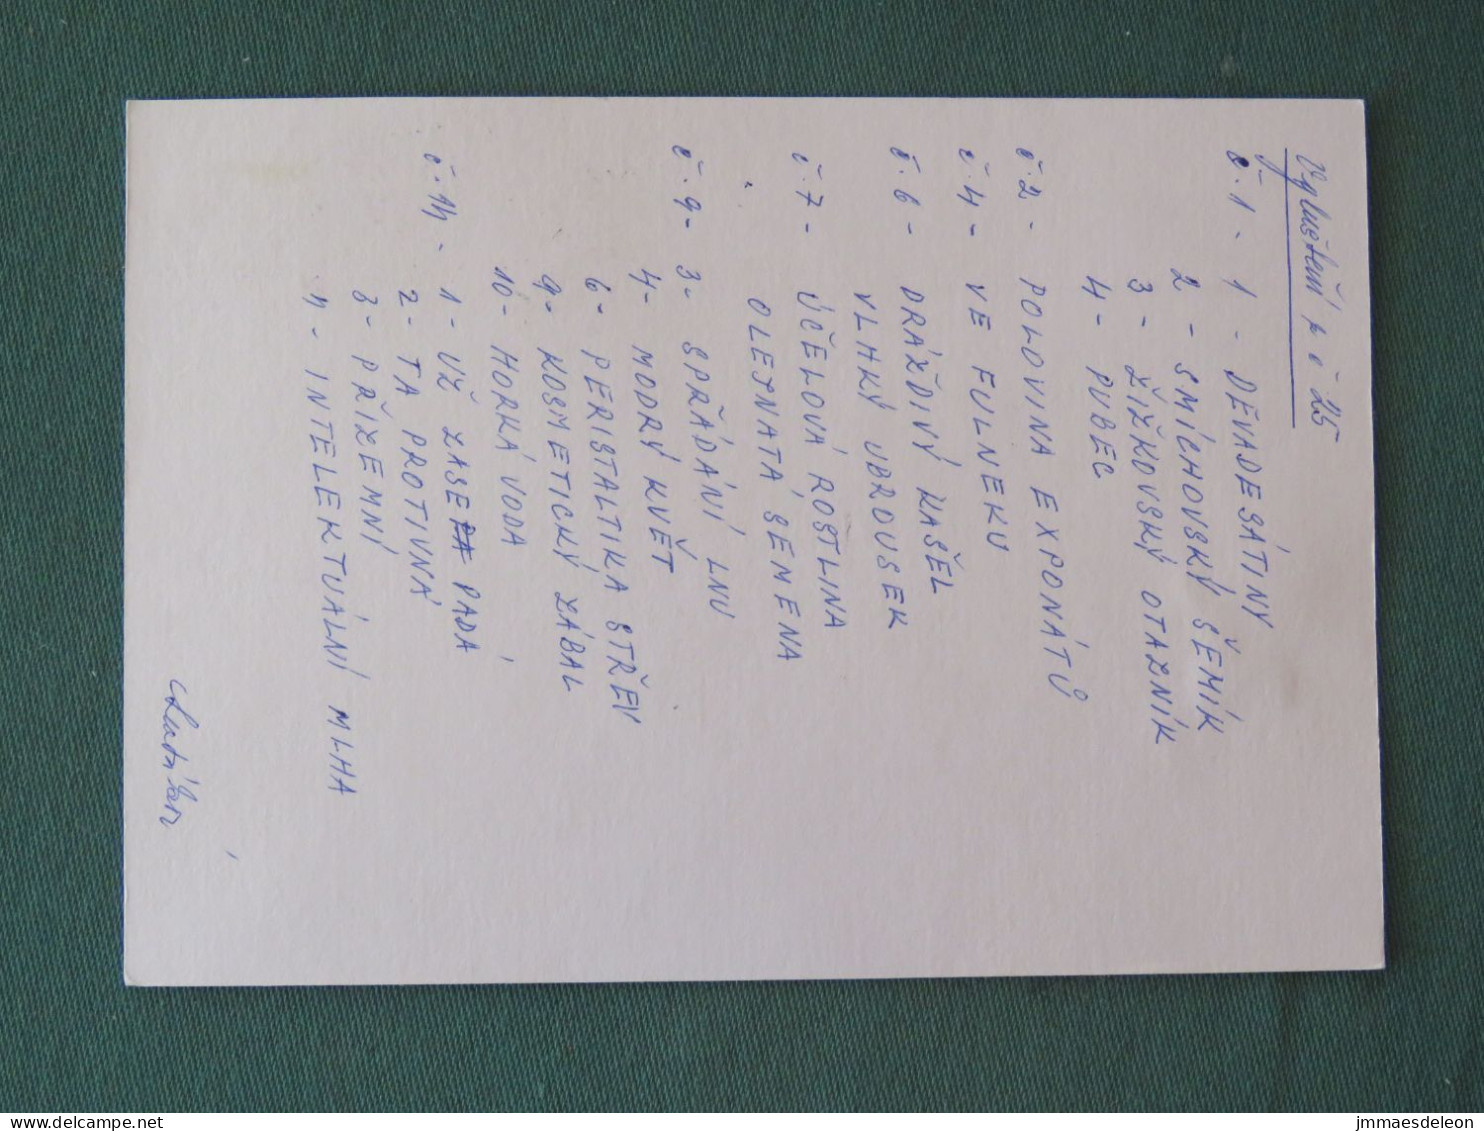 Vyluštění k č 25
č. 1 - 1 - DEVADESÁTINY
2 - SMÍCHOVSKÝ ŠEMÍK
3 - ŽIŽKOVSKÝ OTAZNÍK
4 - PUBEC
č. 2 - POLOVINA EXPONÁTŮ
č. 4 - VE FULNEKU
č. 6 - DRÁŽDIVÝ KAŠEL
VLHKÝ UBROUSEK
č. 7 - ÚČELOVÁ ROSTLINA
OLEJNATÁ SEMENA
č. 9 - 3 - SPŘÁDÁNÍ LNU
4 - MODRÝ KVĚT
6 - PERISTALTIKA STŘEV
9 - KOSMETICKÝ ZÁBAL
10 - HORKÁ VODA
č. 14 - 1 - UŽ ZASE PADÁ
2 - TA PROTIVNÁ
3 - PŘÍZEMNÍ
4 - INTELEKTUÁLNÍ MLHA
jmmaesdeleon